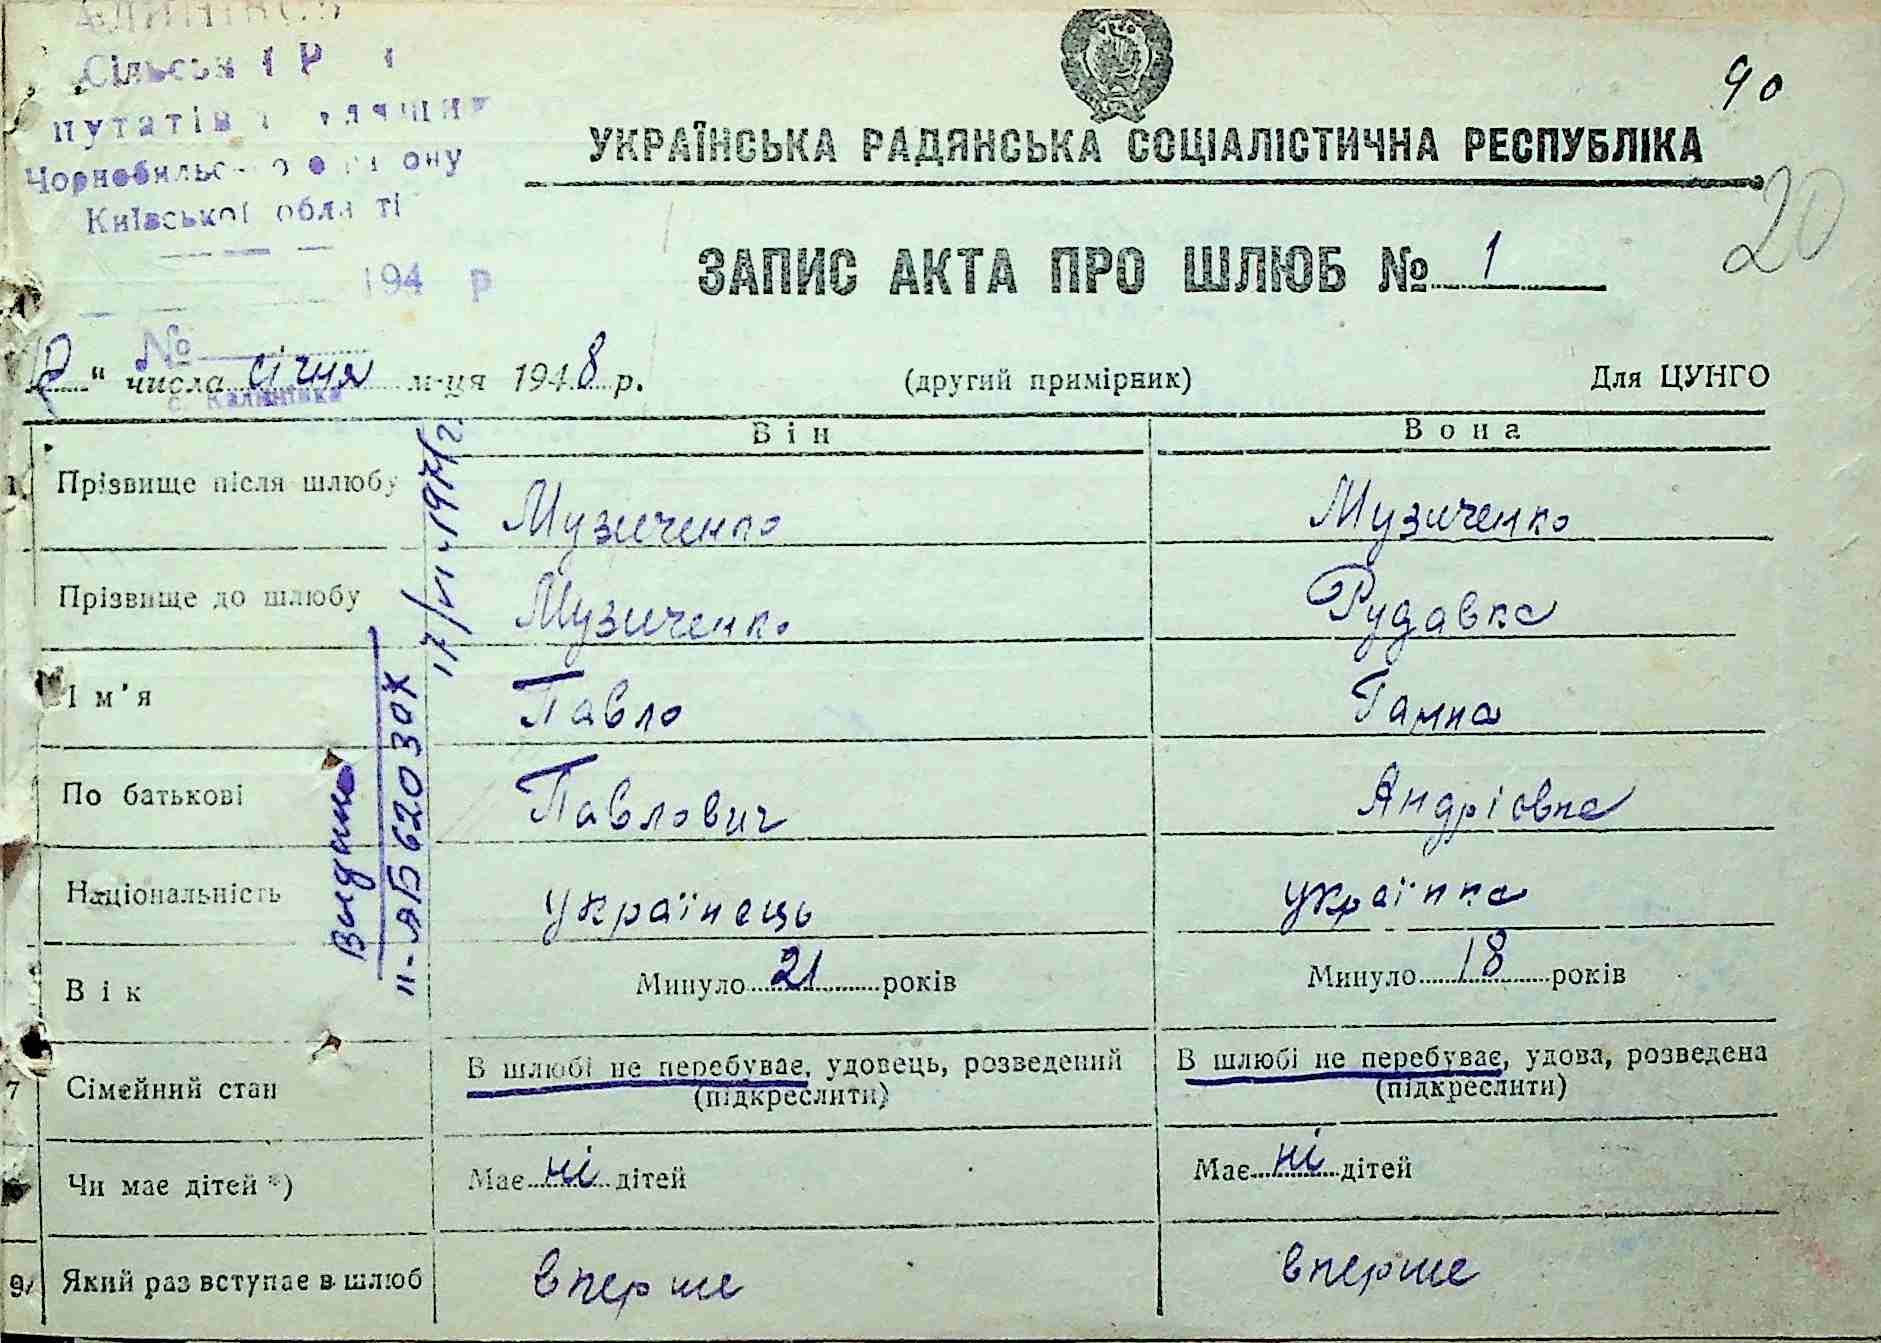 Сільськ
путатів
Чорнобильс ону
Київської області
194 р
№
с. Калинівка
90
20
УКРАЇНСЬКА РАДЯНСЬКА СОЦІАЛІСТИЧНА РЕСПУБЛІКА
ЗАПИС АКТА ПРО ШЛЮБ № 1
" числа січня м-ця 1948 р. (другий примірник) Для ЦУНГО
Він Вона
1 Прізвище після шлюбу Музиченко Музиченко
Прізвище до шлюбу Музиченко Рудавка
Ім'я Павло Ганна
По батькові Павлович Андріовна
Національність українець українка
Вік Минуло 21 років Минуло 18 років
7 Сімейний стан В шлюбі не перебуває, удовець, розведений (підкреслити) В шлюбі не перебуває, удова, розведена (підкреслити)
Чи має дітей *) Має ні дітей Має ні дітей
9 Який раз вступає в шлюб вперше вперше
Видано
II-ЯБ 620304
17/VI-1974г.